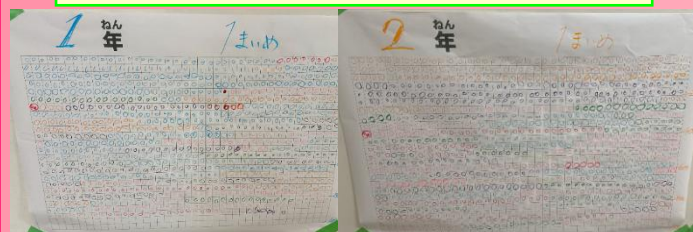 1年
ねん
1まいめ
2年
ねん
1まいめ